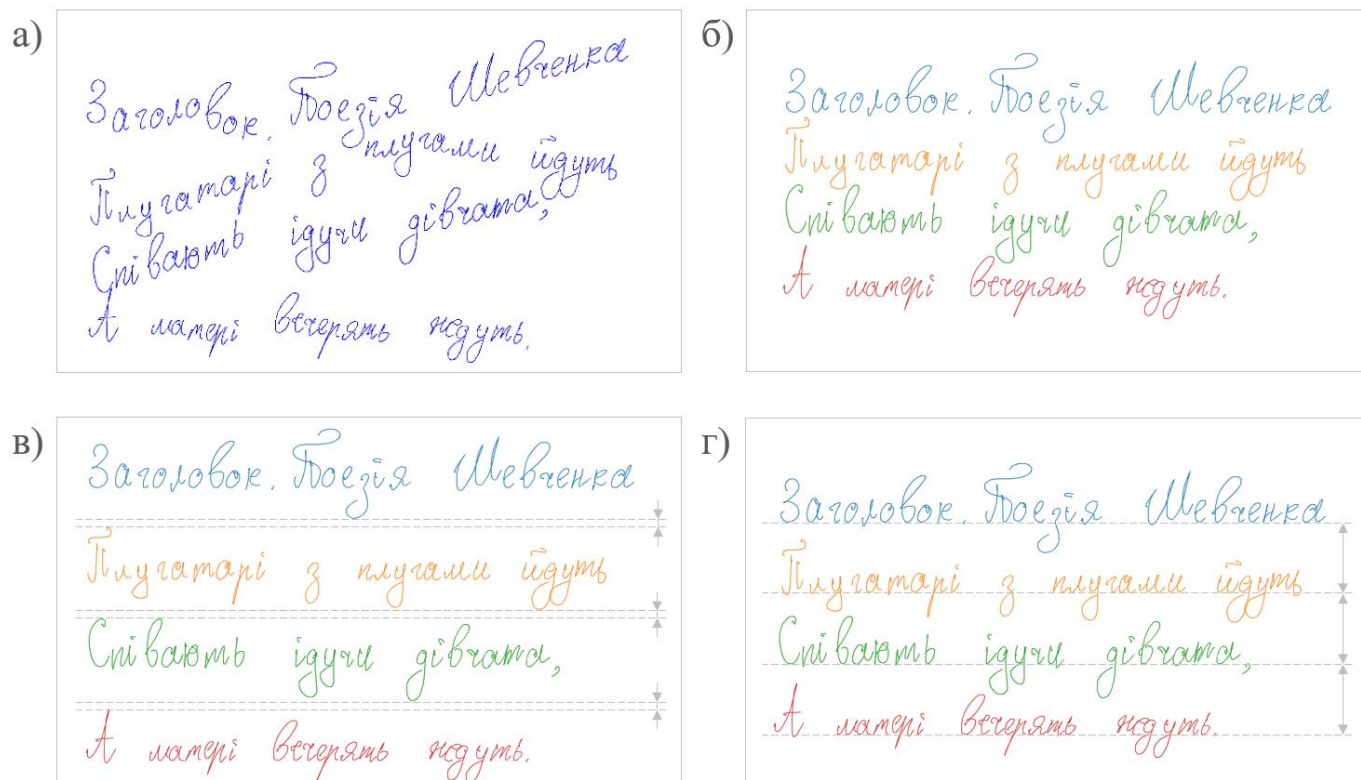 а)
Заголовок. Поезія Шевченка
Плугатарі з плугами йдуть
Співають ідучи дівчата,
А матері вечерять ждуть.
б)
Заголовок. Поезія Шевченка
Плугатарі з плугами йдуть
Співають ідучи дівчата,
А матері вечерять ждуть.
в)
Заголовок. Поезія Шевченка
Плугатарі з плугами йдуть
Співають ідучи дівчата,
А матері вечерять ждуть.
г)
Заголовок. Поезія Шевченка
Плугатарі з плугами йдуть
Співають ідучи дівчата,
А матері вечерять ждуть.